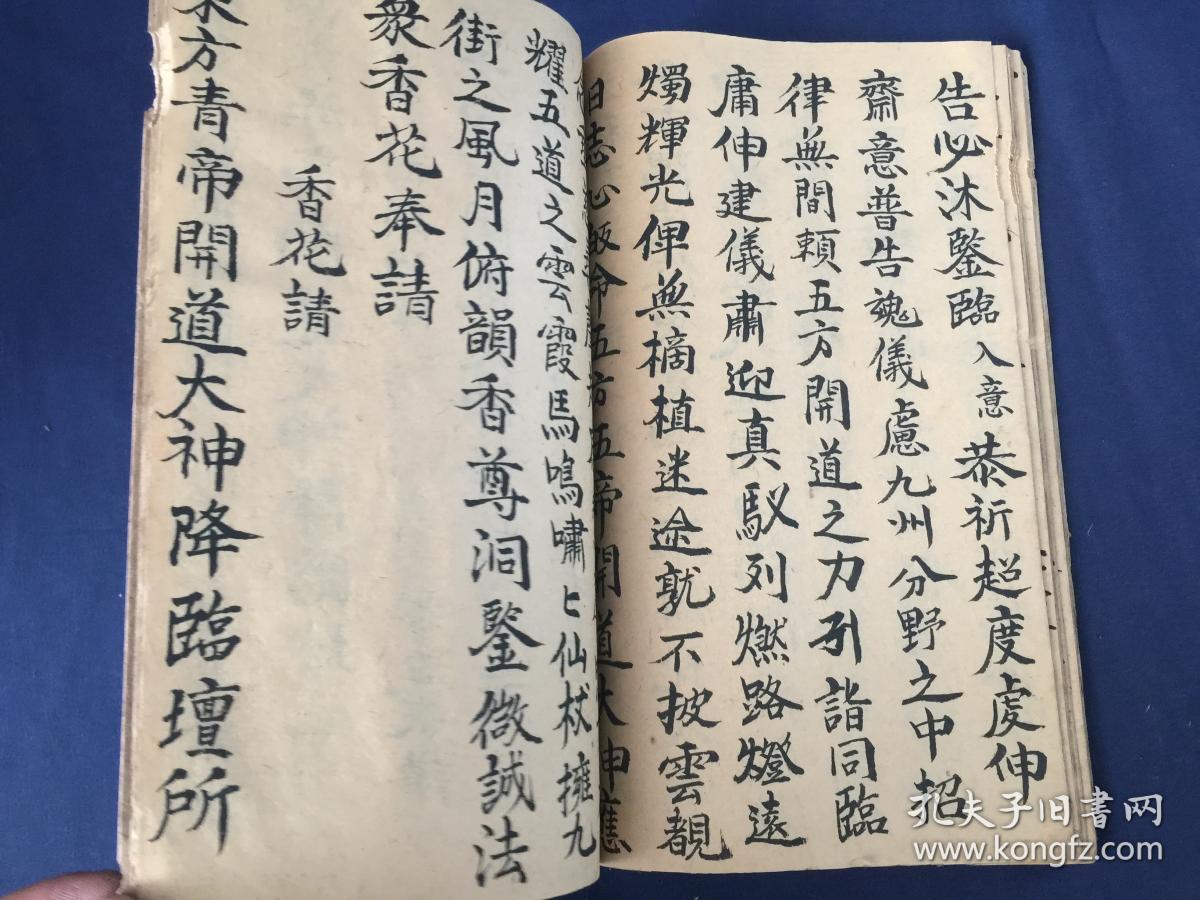 告必沐鑒臨入意恭祈超度虔伸
齋意普告魂儀慮九州分野之中招
律無間頼五方開道之力引詣同臨
庸伸建儀肅迎真馭列燃路燈遠
燭輝光俾無擿植迷途就不披雲覩
日志心皈命五方五帝開道大神應
耀五道之雲霞馬鳴嘯匕仙杖擁九
街之風月俯韻香尊洞鑒微誠法
衆香花奉請
香花請
東方青帝開道大神降臨壇所
孔夫子旧書网
www.kongfz.com